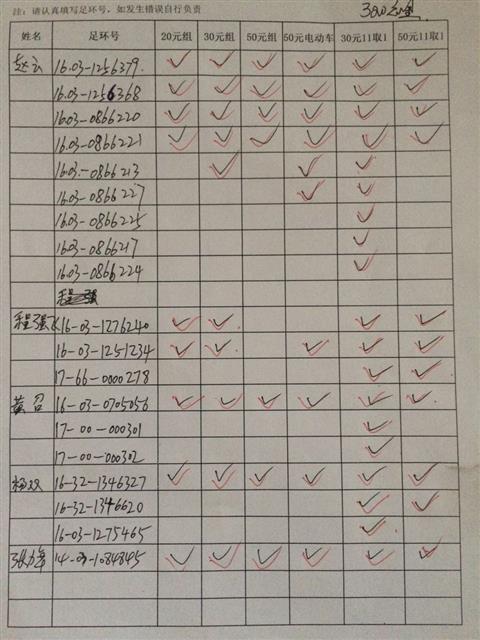 注：请认真填写足环号，如发生错误自行负责
姓名 足环号 20元组 30元组 50元组 50元电动车 30元11取1 50元11取1
赵云 16.03-1256379 ✓ ✓ ✓ ✓ ✓ ✓
16.03-1256368 ✓ ✓ ✓ ✓ ✓ ✓
16.03-0866220 ✓ ✓ ✓ ✓ ✓ ✓
16.03-0866221 ✓ ✓ ✓ ✓ ✓ ✓
16.03-0866213 ✓ ✓ ✓
16.03-0866227 ✓ ✓
16.03-0866225 ✓
16.03-0866217 ✓
16.03-0866224 ✓
程强 16-03-1276240 ✓ ✓ ✓ ✓
16-03-1251234 ✓ ✓ ✓ ✓
17-66-0000278 ✓ ✓
黄召 16-03-0705056 ✓ ✓ ✓ ✓ ✓ ✓
17-00-000301 ✓
17-00-000302 ✓
杨双 16-32-1346327 ✓ ✓ ✓ ✓ ✓ ✓
16-32-1346620 ✓ ✓
16-03-1275465 ✓
14-03-1084845 ✓ ✓ ✓ ✓ ✓ ✓